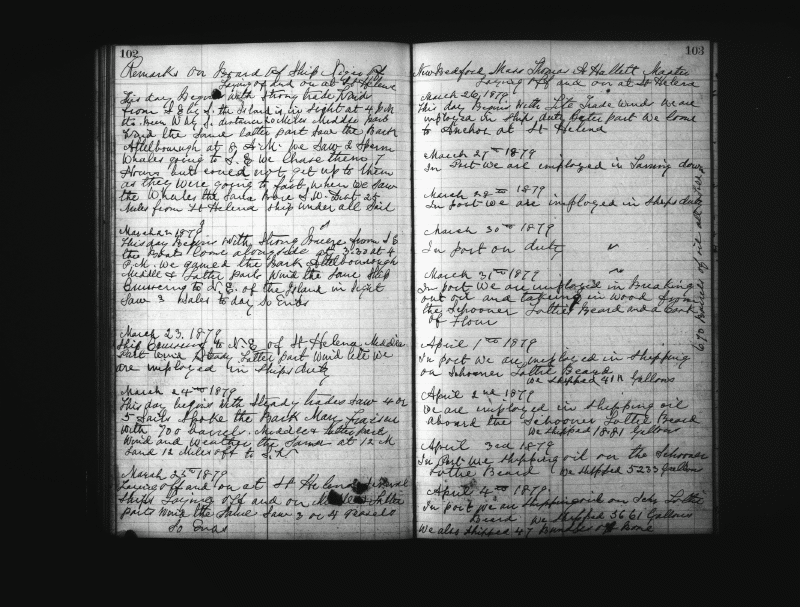 102
Remarks on Board of Ship
Laying off and on at St Helena
This day Begins with Strong trade Wind
from S. E. by S. the Island is in sight at 4 P.M
the Bore W by S. distance 20 Miles Middle part
Wind the Same latter part Saw the Bark
Attelborough at 8 A.M. We Saw 2 Sperm
Whales going to S. E We Chase them 7
Hours but could not get up to them
as they Were going to fast When We Saw
the Whales the Land Bore S.W. Dist 25
Miles from St Helena Ship under all Sail
March 22 1879
This day Begins With Strong Breeze from S E
the Boat Come alongside at 3.30 at 4
P.M. We gamed the Bark Attelborough
Middle & Latter parts Wind the Same Ship
Cruising to N. E. of the Island in Sight
Saw 3 Sales to day So Ends
March 23. 1879
Ship Cruising to N. E of St Helena Middle
part Wind Steady Latter part Wind lite We
are imployed in Ships duty
March 24th 1879
This day begins with Steady trades Saw 4 or
5 Sails Spoke the Bark Mary Frazier
With 700 barrels. Middle & latter part
Wind and Weather the Same at 12 M
Land 12 Miles off to S.W
March 25th 1879
Laying off and on at St Helena Several
Ships Laying off and on Middle & Latter
parts Wind the Same Saw 3 or 4 Vessels
So Ends
103
New Bedford, Mass Thomas H Hallett Master
Laying off and on at St Helena
March 26, 1879
This day Begins With Lite Trade Winds We are
imployed in Ships duty Latter part We Come
to Anchor at St Helena
March 27th 1879
In Port We are imployed in Taring down
March 28th 1879
In Port We are imployed in Ships duty
March 30th 1879
In port on duty "
March 31st 1879
In port We are imployed in Breaking
out oil and taking in Wood from
the Schooner Lottie Beard and a Cask
of Flour
April 1st 1879
In port We are imployed in Shipping
on Schooner Lottie Beard
We Shipped Gallons
April 2nd 1879
We are imployed in Shipping oil
aboard the Schooner Lottie Beard
We Shipped 1881 Gallons
April 3rd 1879
In Port We Shipping oil on the Schooner
Lottie Beard We Shipped 5233 Gallons
April 4th 1879
In port We are Shipping oil on Schr Lottie
Beard We Shipped 5661 Gallons
We also Shipped 47 Bundles of Bone
690 Barrels of oil all told